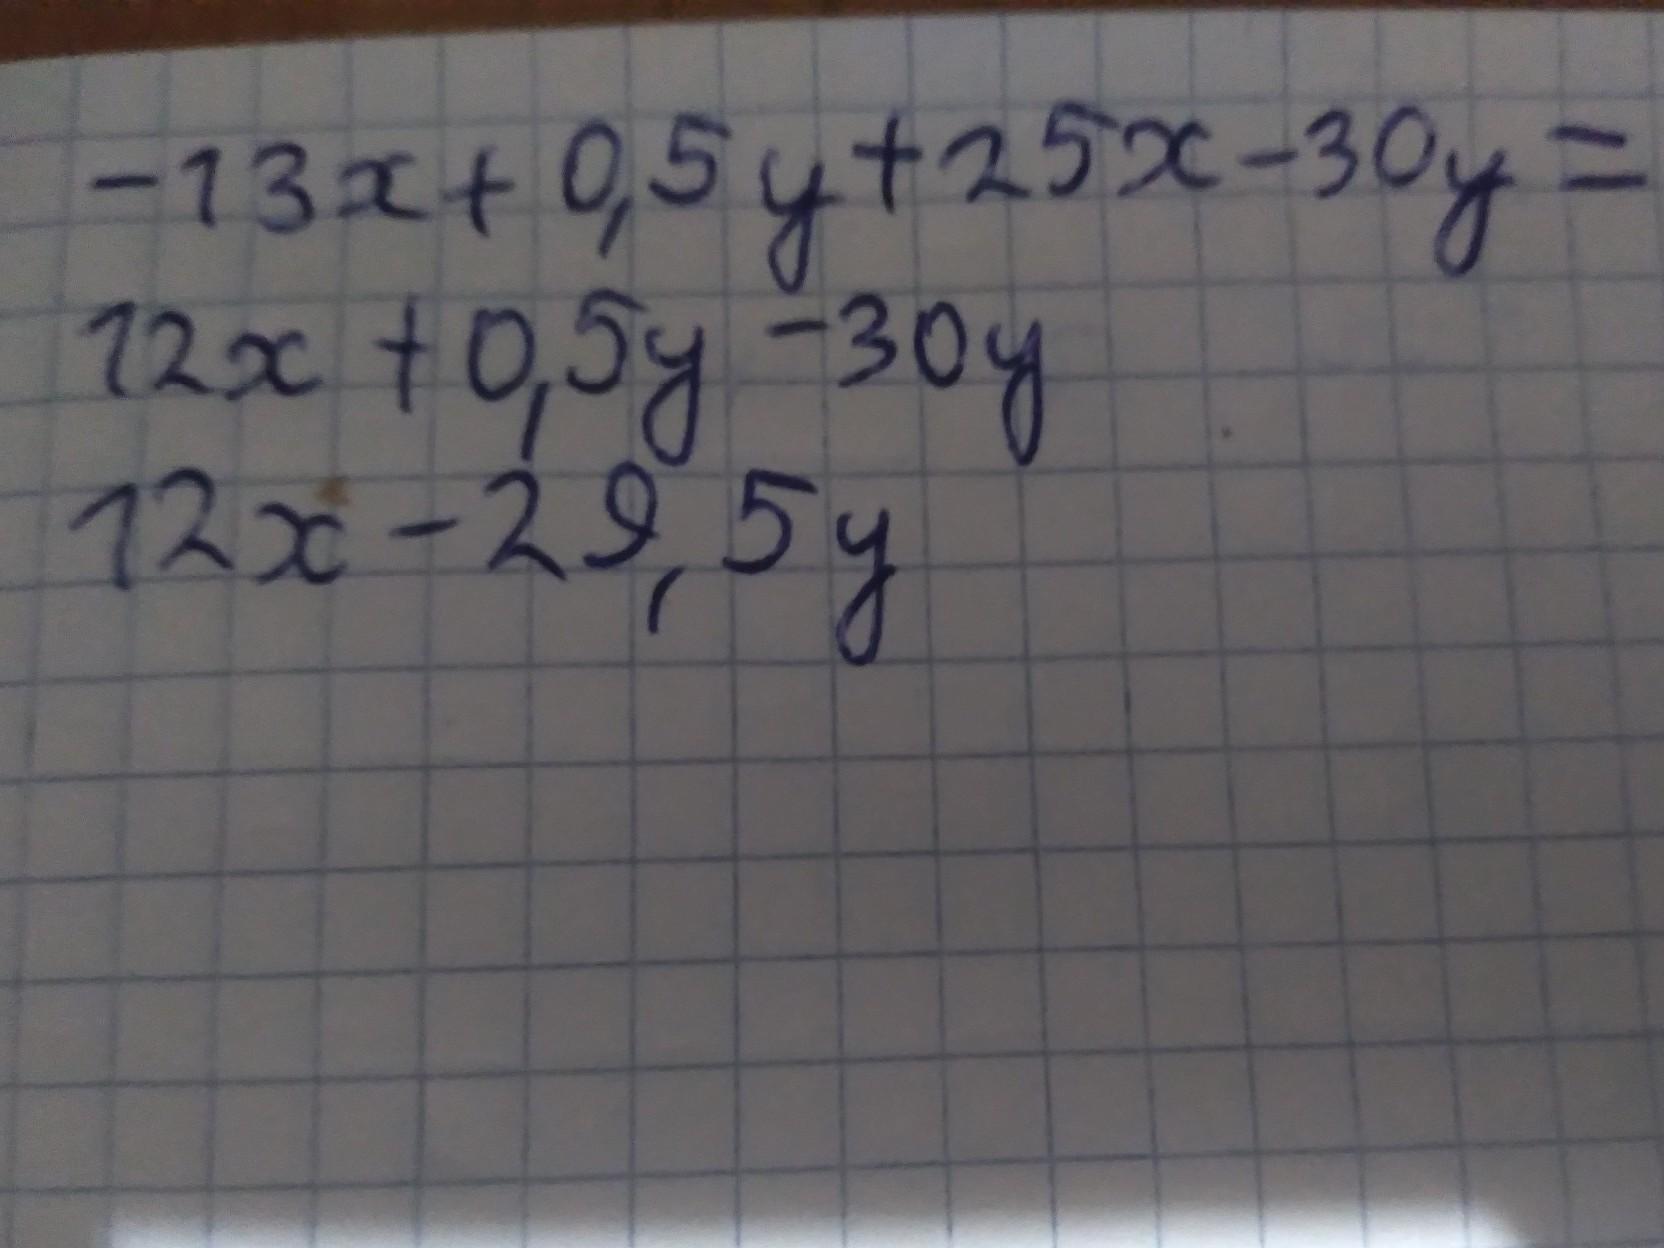 -13x+0,5y+25x-30y=
12x+0,5y-30y
12x-29,5y